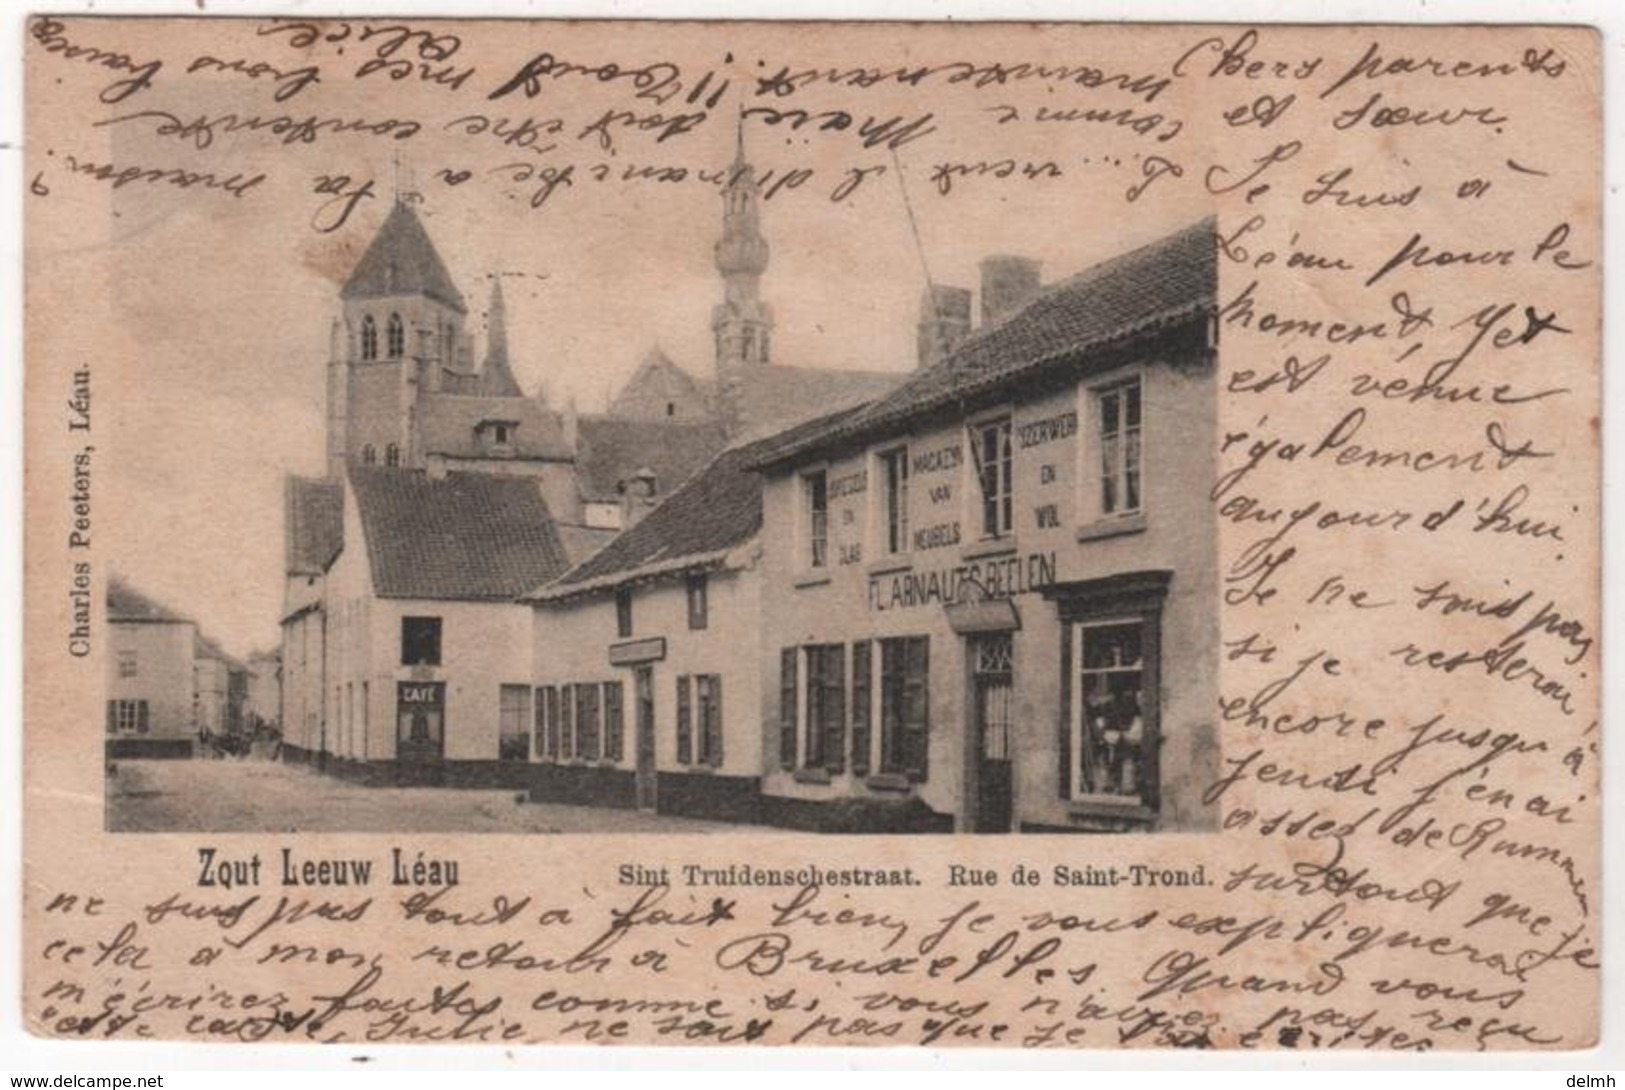 Chers parents
et sœur.
Je suis à
Léau pour le
moment, Jef
est vénue
également
aujourd'hui.
Je ne sais pas
si je resterai
encore jusqu'à
jeudi j'en ai
assez de Rummen
surtout que je
ne suis pas tout à fait bien, je vous expliquerai
cela à mon retour à Bruxelles. Quand vous
m'écrirez faites comme si vous n'avez pas reçu
cette carte, Julie ne sait pas que je vous écrites
L... vient il dimanche à la maison?
comme Marie doit être contente
maintenant!! Tout mes bons baisers
Alice
Charles Peeters, Léau.
MAGAZYN
VAN
MEUBELS
YZERWERK
EN
WOL
EN
GLAS
FL. ARNAUTS-BEELEN
CAFÉ
Zout Leeuw Léau
Sint Truidenschestraat. Rue de Saint-Trond.
delcampe.net
delmh